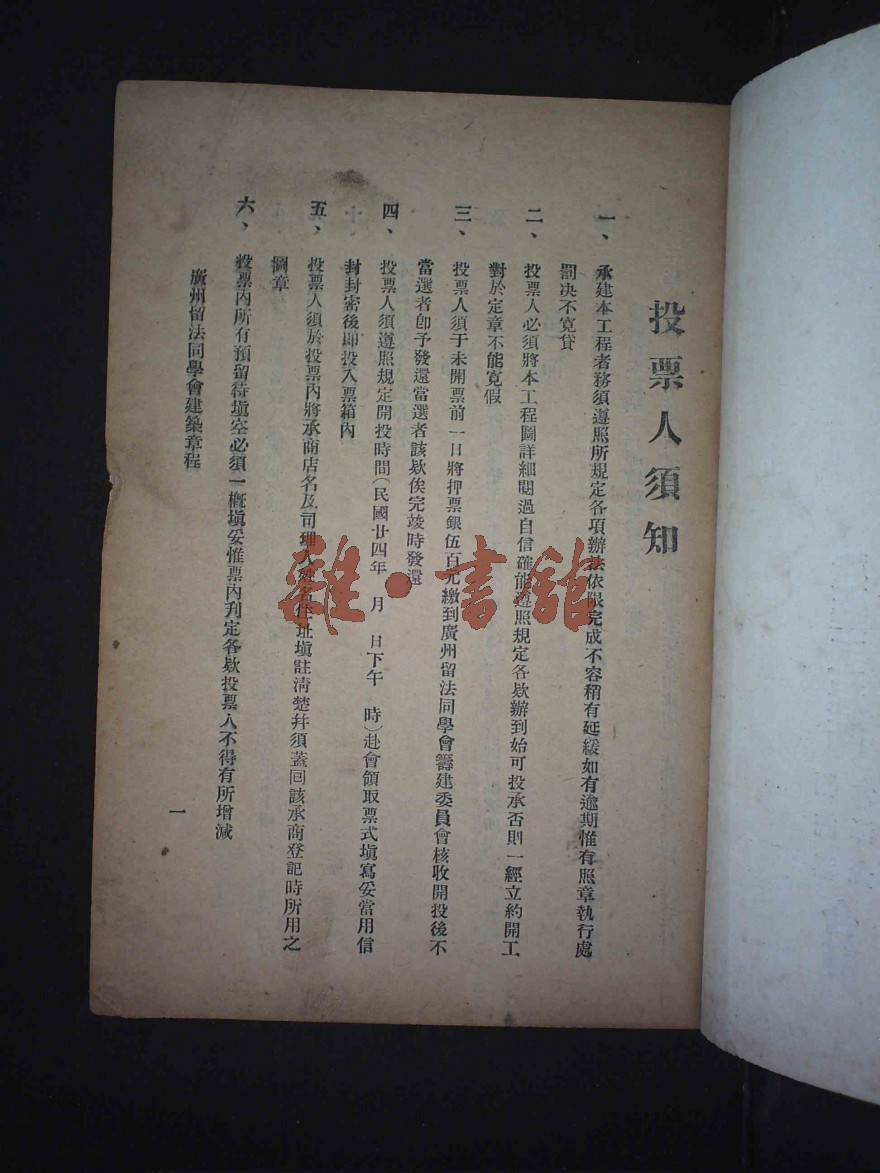 投票人須知
一、承建本工程者務須遵照所規定各項辦法依限完成不容稍有延緩如有逾期惟有照章執行處
罰决不寬貸
二、投票人必須將本工程圖詳細閱過自信確能遵照規定各欵辦到始可投承否則一經立約開工
對於定章不能寬假
三、投票人須于未開票前一日將押票銀伍百元繳到廣州留法同學會籌建委員會核收開投後不
當選者卽予發還當選者該欵俟完竣時發還
四、投票人須遵照規定開投時間(民國廿四年 月 日下午 時)赴會領取票式塡寫妥當用信
封封密後卽投入票箱內
五、投票人須於投票內將承商店名及司理人姓名住址塡註淸楚幷須蓋回該承商登記時所用之
圖章
六、投票內所有預留待塡空必須一概塡妥惟票內刋定各欵投票人不得有所增減
廣州留法同學會建築章程
一
雜·書館